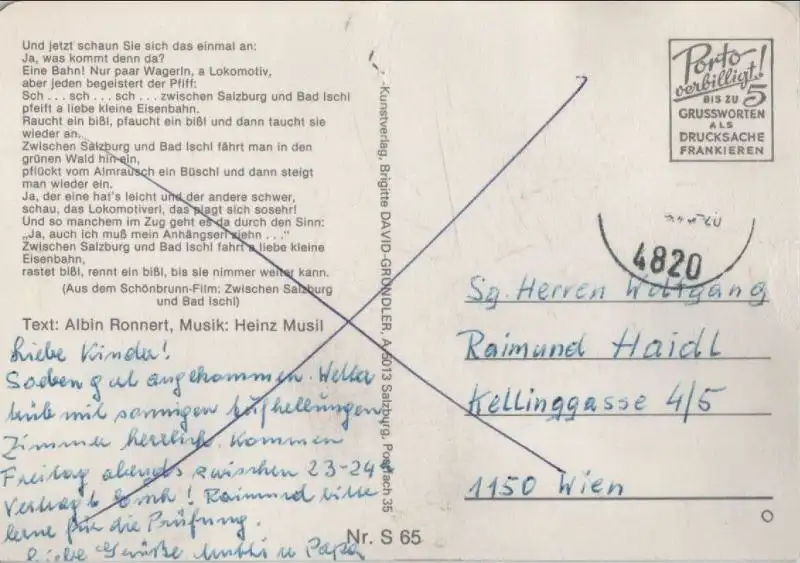 Und jetzt schaun Sie sich das einmal an:
Ja, was kommt denn da?
Eine Bahn! Nur paar Wagerln, a Lokomotiv,
aber jeden begeistert der Pfiff:
Sch . . . sch . . . sch . . . zwischen Salzburg und Bad Ischl
pfeift a liebe kleine Eisenbahn.
Raucht ein bißl, pfaucht ein bißl und dann taucht sie
wieder an.
Zwischen Salzburg und Bad Ischl fährt man in den
grünen Wald hin ein,
pflückt vom Almrausch ein Büschl und dann steigt
man wieder ein.
Ja, der eine hat's leicht und der andere schwer,
schau, das Lokomotiverl, das plagt sich sosehr!
Und so manchem im Zug geht es da durch den Sinn:
„Ja, auch ich muß mein Anhängserl ziehn . . ."
Zwischen Salzburg und Bad Ischl fahrt a liebe kleine
Eisenbahn,
rastet bißl, rennt ein bißl, bis sie nimmer weiter kann.
(Aus dem Schönbrunn-Film: Zwischen Salzburg
und Bad Ischl)
Text: Albin Ronnert, Musik: Heinz Musil
Liebe Kinder!
Soeben gut angekommen. Wetter
trüb mit sonnigen Aufhellungen,
Zimmer herrlich. Kommen
Freitag abends zwischen 23-24h
! Raimund bitte
lerne für die Prüfung.
Liebe Grüße Mutti u Papa
Kunstverlag, Brigitte DAVID-GRÜNDLER, A-5013 Salzburg, Postfach 35
Nr. S 65
Porto
verbilligt!
BIS ZU 5
GRUSSWORTEN
ALS
DRUCKSACHE
FRANKIEREN
4820
Sg. Herren Wolfgang
Raimund Haidl
Kellinggasse 4/5
1150 Wien